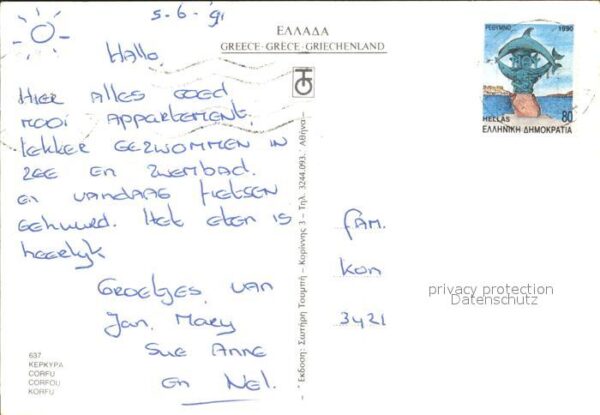 5-6-'91
ΕΛΛΑΔΑ
GREECE-GRÈCE-GRIECHENLAND
Hallo,
Hier alles goed
mooi appartement,
lekker gezwommen in
zee en zwembad.
en vandaag fietsen
gehuurd. Het eten is
heerlijk
Groetjes van
Jan, Mary
Sue Anne
en Nel.
637
ΚΕΡΚΥΡΑ
CORFU
CORFOU
KORFU
Έκδοση: Σωτήρη Τουμπή – Κορίννης 3 – Τηλ. 3244.093. Αθήνα
ΡΕΘΥΜΝΟ 1990
HELLAS 80
ΕΛΛΗΝΙΚΗ ΔΗΜΟΚΡΑΤΙΑ
fam.
Kon
3421
privacy protection
Datenschutz